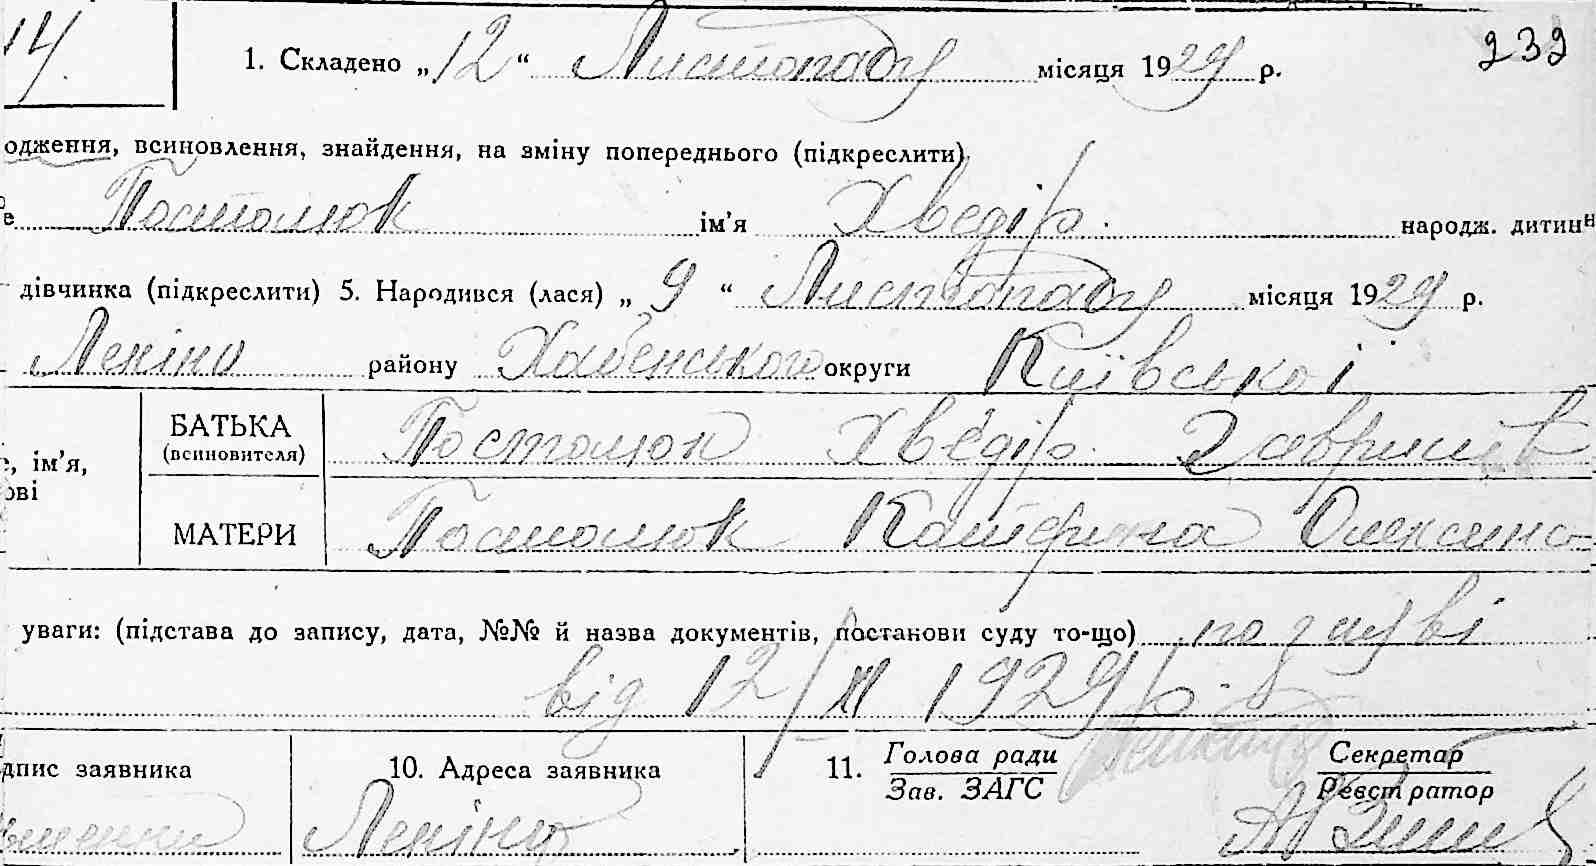 14.
1. Складено „12“ Листопаду місяця 1929 р. 232
одження, всиновлення, знайдення, на зміну попереднього (підкреслити)
е Постолюк ім’я Хведір народж. дитин
дівчинка (підкреслити) 5. Народився (лася) „9“ Листопаду місяця 1929 р.
Леніно району Хабенського округи Київської
БАТЬКА Постолюк Хведір
(всиновителя)
, ім’я,
ові
МАТЕРИ Постолюк Катерина
уваги: (підстава до запису, дата, №№ й назва документів, постанови суду то-що) по заяві
від 12/XI 1929 р.
дпис заявника 10. Адреса заявника 11. Голова ради Секретар
Зав. ЗАГС Реєстратор
Леніно